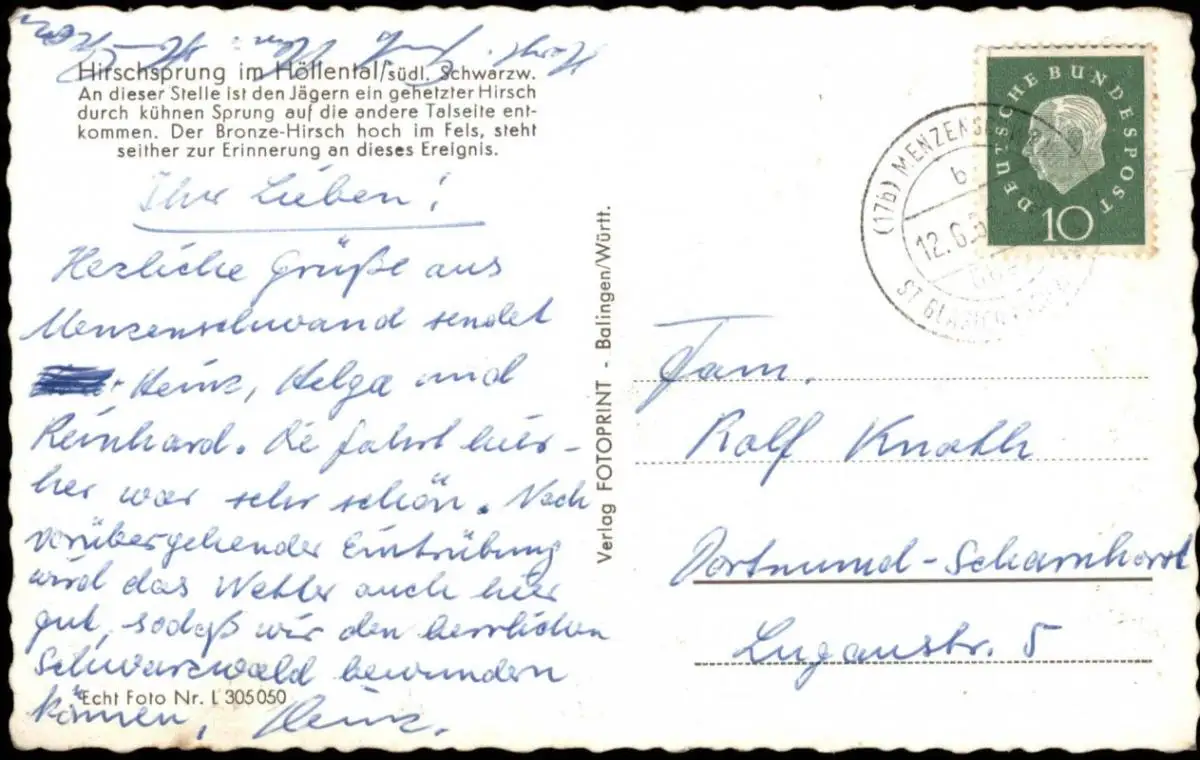 Hirschsprung im Höllental/südl. Schwarzw.
An dieser Stelle ist den Jägern ein gehetzter Hirsch
durch kühnen Sprung auf die andere Talseite ent-
kommen. Der Bronze-Hirsch hoch im Fels, steht
seither zur Erinnerung an dieses Ereignis.
Ihr Lieben!
Herzliche Grüße aus
Menzenschwand sendet
Heinz, Helga und
Reinhard. Die fahrt hier-
her war sehr schön. Nach
vorübergehender Eintrübung
wird das Wetter auch hier
gut, sodaß wir den herrlichen
Schwarzwald bewundern
Echt Foto Nr. L 305050
können, Heinz.
Verlag FOTOPRINT - Balingen/Württ.
DEUTSCHE BUNDESPOST
10
(17b) MENZENSCHWAND
b
12.6.
ST BLASIEN
Fam.
Rolf Knoth
Dortmund-Scharnhorst
Luganstr. 5